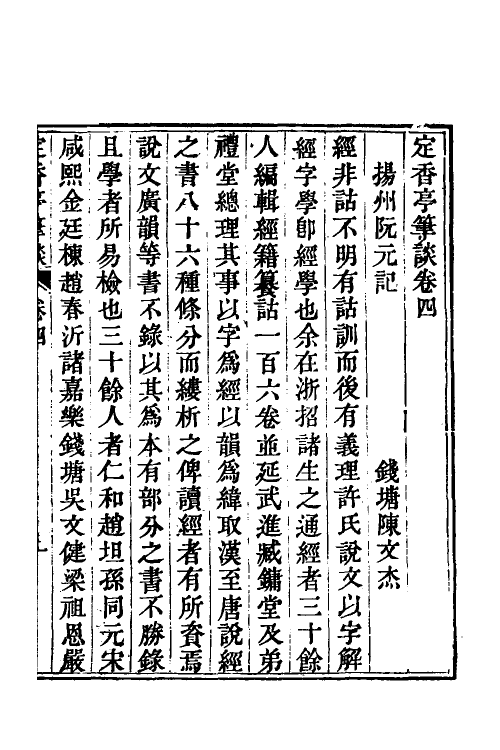 定香亭筆談卷四
揚州阮元記 錢塘陳文杰
經非詁不明有詁訓而後有義理許氏說文以字解
經字學卽經學也余在浙招諸生之通經者三十餘
人編輯經籍纂詁一百六卷並延武進臧鏞堂及弟
禮堂總理其事以字爲經以韻爲緯取漢至唐說經
之書八十六種條分而縷析之俾讀經者有所資焉
說文廣韻等書不錄以其爲本有部分之書不勝錄
且學者所易檢也三十餘人者仁和趙坦孫同元宋
咸熙金廷棟趙春沂諸嘉樂錢塘吳文健梁祖恩嚴
定香亭筆談 卷四